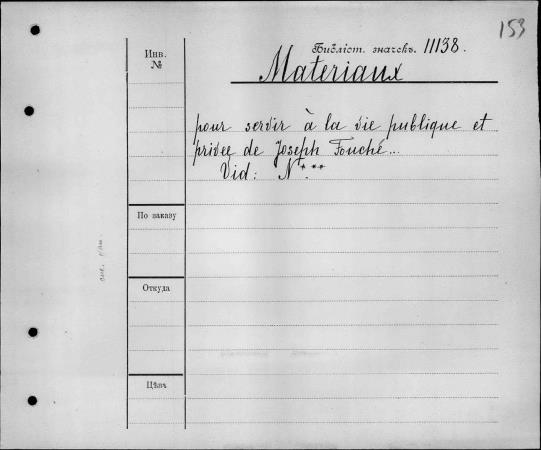 153
Библіот. значекъ. 11138.
Инв.
№
Materiaux
pour servir à la vie publique et
privée de Joseph Fouché...
Vid: N***
По заказу
Откуда
Цѣна